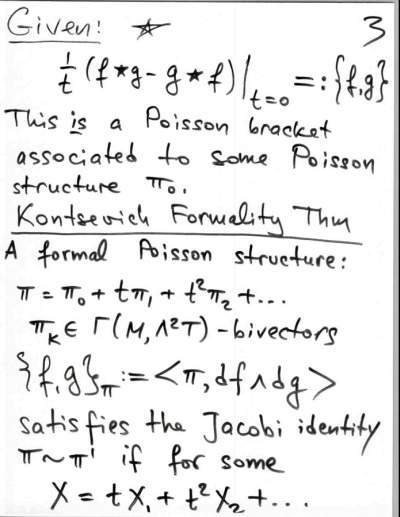 Given: ☆ 3
1/t (f⋆g - g⋆f)|_{t=0} =: {f,g}
This is a Poisson bracket
associated to some Poisson
structure π₀.
Kontsevich Formality Thm
A formal Poisson structure:
π = π₀ + tπ₁ + t²π₂ + ...
π_k ∈ Γ(M, Λ²T) - bivectors
{f,g}_π := <π, df∧dg>
satisfies the Jacobi identity
π ~ π' if for some
X = tX₁ + t²X₂ + ...